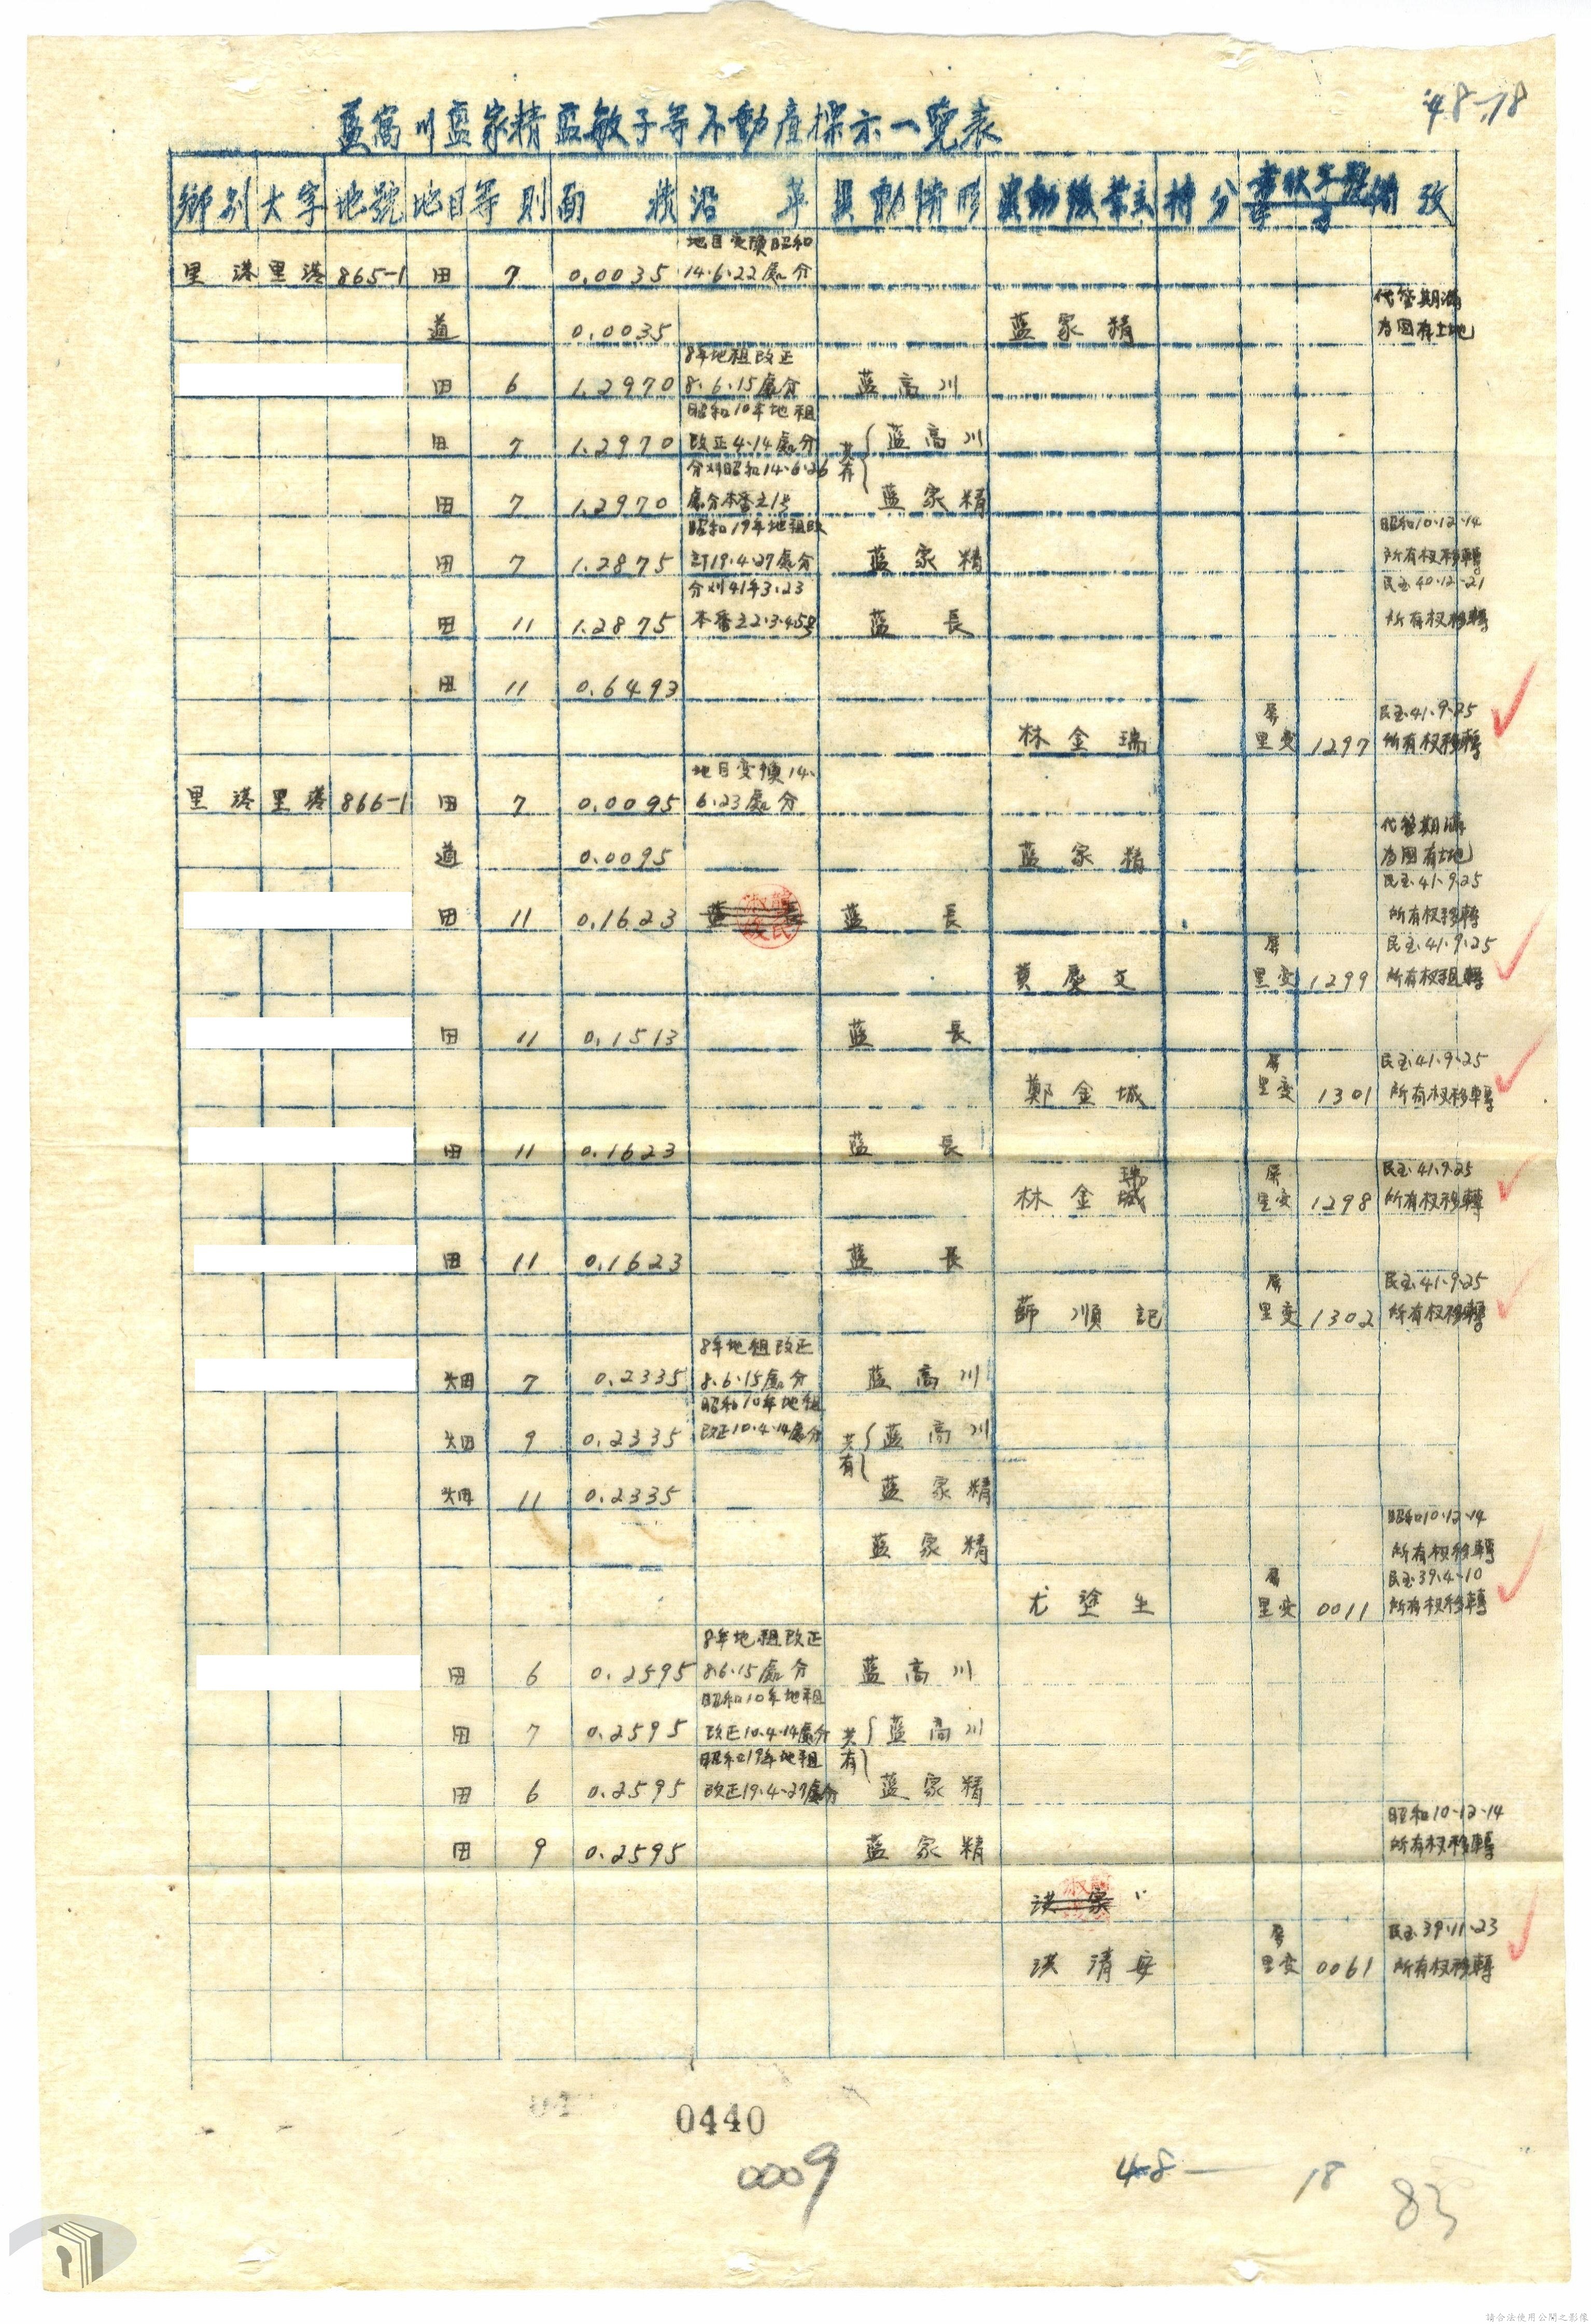 48-18
藍高川藍家精藍敏子等不動產標示一覽表
鄉別 大字 地號 地目 等則 面積 沿革 異動情形 異動後業主 持分 書狀字號 備攷
地目变換昭和
里港 里港 865-1 田 7 0.0035 14.6.22處分
代管期滿
道 0.0035 蓝家精 为國有土地
8年地租改正
田 6 1.2970 8.6.15處分 蓝高川
昭和10年地租
田 7 1.2970 改正4.14處分 共有 蓝高川
分刈昭和14.6.26
田 7 1.2970 處分本番之1号 蓝家精
昭和19年地租改 昭和10.12.14
田 7 1.2875 訂19.4.27處分 蓝家精 所有权移轉
分刈41年3.23 民国40.12.21
田 11 1.2875 本番之2.3.4.5号 蓝長 所有权移轉
田 11 0.6493
屏 民国41.9.25
林金瑞 里变 1297 所有权移轉
地目变換14.
里港 里港 866-1 田 7 0.0095 6.23處分
代管期滿
道 0.0095 蓝家精 为國有土地
民国41.9.25
田 11 0.1623 蓝長 蓝長 所有权移轉
屏 民国41.9.25
黄慶文 里变 1299 所有权移轉
田 11 0.1513 蓝長
屏 民国41.9.25
鄭金城 里变 1301 所有权移轉
田 11 0.1623 蓝長
瑞 屏 民国41.9.25
林金城 里变 1298 所有权移轉
田 11 0.1623 蓝長
屏 民国41.9.25
薛順記 里变 1302 所有权移轉
8年地租改正
畑 7 0.2335 8.6.15處分 蓝高川
昭和10年地租
畑 9 0.2335 改正10.4.14處分 共有 蓝高川
畑 11 0.2335 蓝家精
昭和10.12.14
蓝家精 所有权移轉
屏 民国39.4.10
尤塗生 里变 0011 所有权移轉
8年地租改正
田 6 0.2595 8.6.15處分 蓝高川
昭和10年地租
田 7 0.2595 改正10.4.14處分 共有 蓝高川
昭和19年地租
田 6 0.2595 改正19.4.27處分 蓝家精
昭和10.12.14
田 9 0.2595 蓝家精 所有权移轉
洪家
屏 民国39.11.23
洪清安 里变 0061 所有权移轉
0440
0009
48—18
83
請合法使用公開之影像